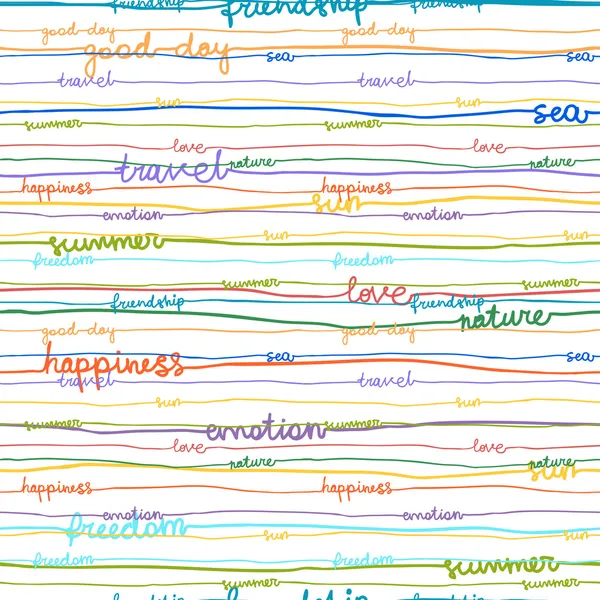 friendship friendship friendship
good-day good-day
good-day sea sea
travel travel
sun sun
sea
summer summer
love love
travel nature nature
happiness happiness
sun
emotion emotion
summer sun sun
freedom freedom
summer summer
love
friendship friendship
nature
good-day good-day
happiness sea sea
travel travel
sun sun
summer emotion summer
love love
nature nature
sun
happiness happiness
emotion emotion
freedom
sun sun
freedom freedom
summer
summer summer
friendship friendship friendship